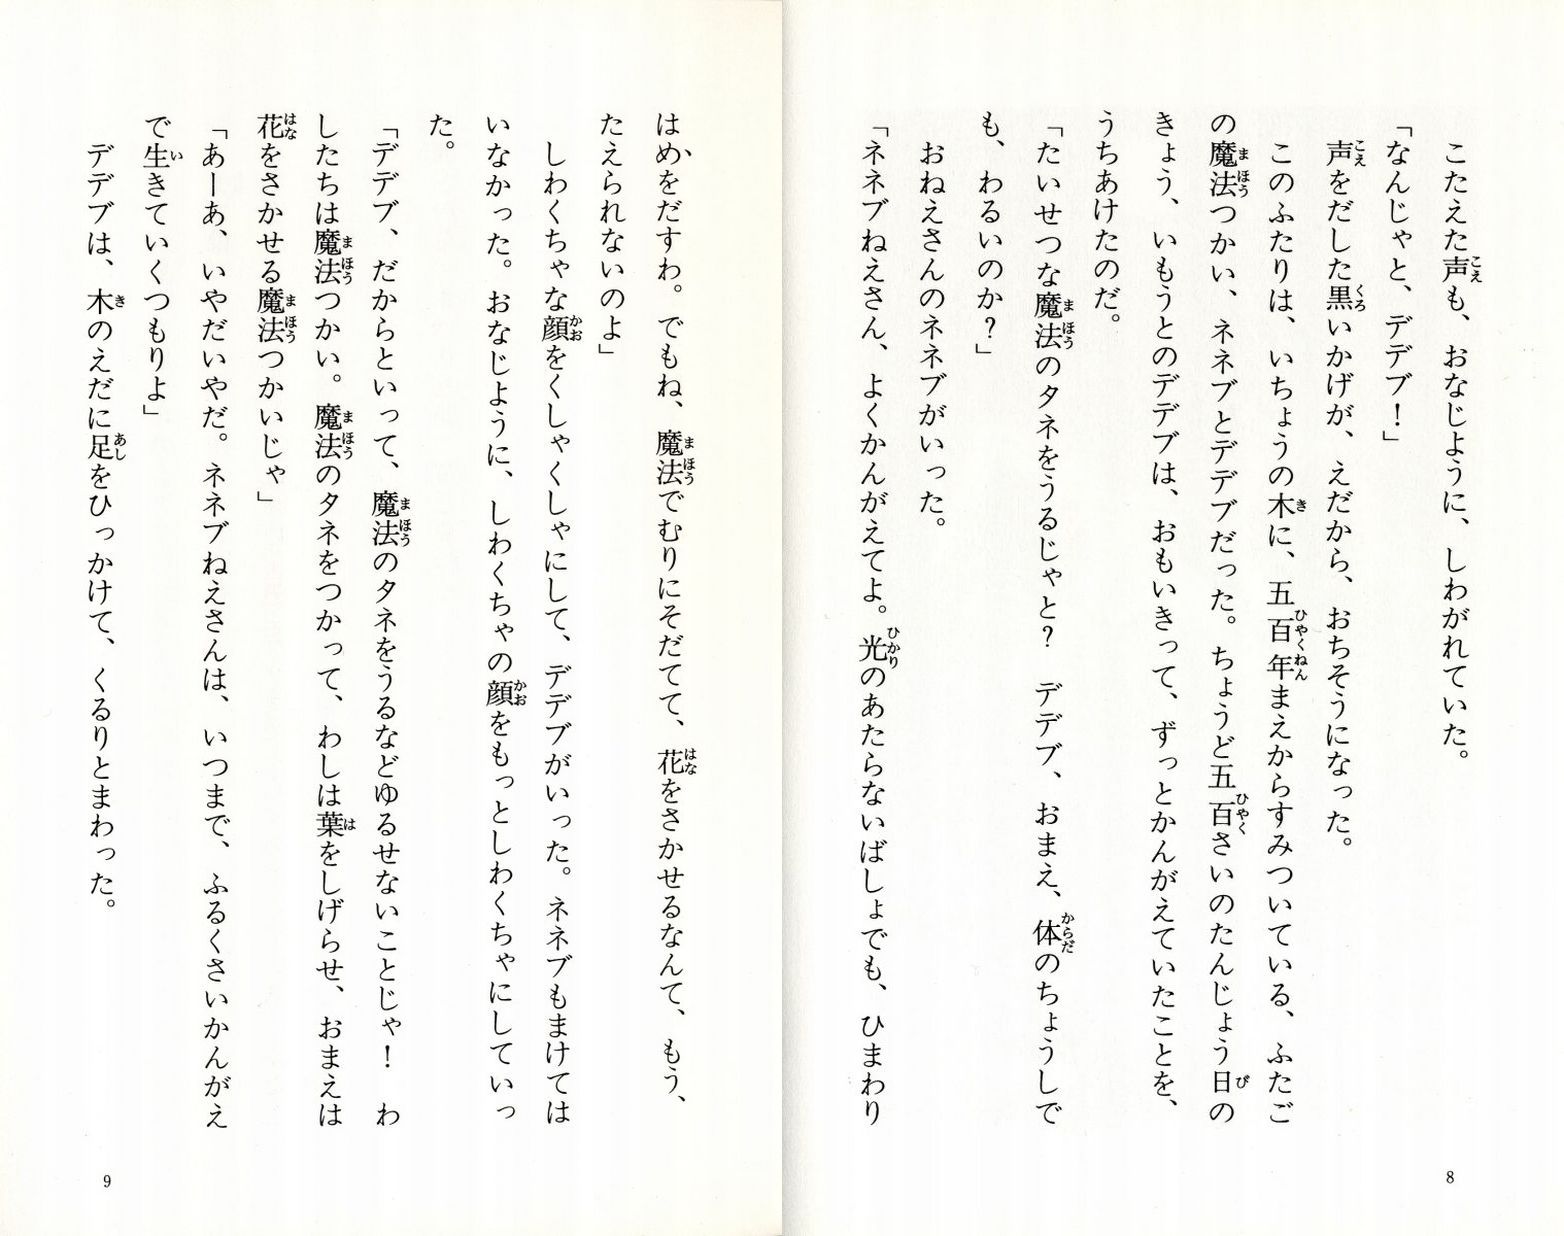 こたえた声も、おなじように、しわがれていた。
「なんじゃと、デデブ！」
声をだした黒いかげが、えだから、おちそうになった。
このふたりは、いちょうの木に、五百年まえからすみついている、ふたご
の魔法つかい、ネネブとデデブだった。ちょうど五百さいのたんじょう日の
きょう、いもうとのデデブは、おもいきって、ずっとかんがえていたことを、
うちあけたのだ。
「たいせつな魔法のタネをうるじゃと？　デデブ、おまえ、体のちょうしで
も、わるいのか？」
おねえさんのネネブがいった。
「ネネブねえさん、よくかんがえてよ。光のあたらないばしょでも、ひまわり
8
はめをだすわ。でもね、魔法でむりにそだてて、花をさかせるなんて、もう、
たえられないのよ」
しわくちゃな顔をくしゃくしゃにして、デデブがいった。ネネブもまけては
いなかった。おなじように、しわくちゃの顔をもっとしわくちゃにしていっ
た。
「デデブ、だからといって、魔法のタネをうるなどゆるせないことじゃ！　わ
したちは魔法つかい。魔法のタネをつかって、わしは葉をしげらせ、おまえは
花をさかせる魔法つかいじゃ」
「あーあ、いやだいやだ。ネネブねえさんは、いつまで、ふるくさいかんがえ
で生きていくつもりよ」
デデブは、木のえだに足をひっかけて、くるりとまわった。
9